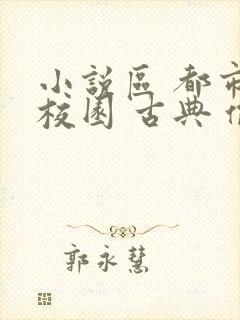 小說區 都市
校園 古典
郭永慧